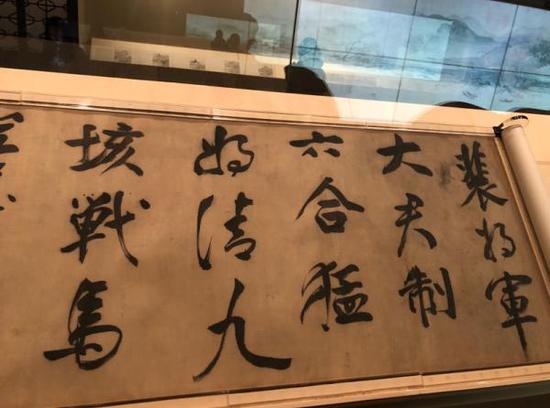 裴将軍
大君制
六合猛
将清九
垓戦馬